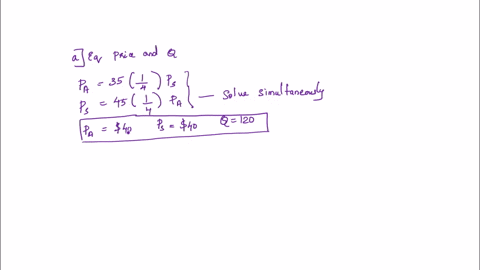 a] Eq Price and Q
P_A = 35 (1/4) P_S
P_S = 45 (1/4) P_A
— Solve simultaneously
P_A = $40 P_S = $40 Q = 120